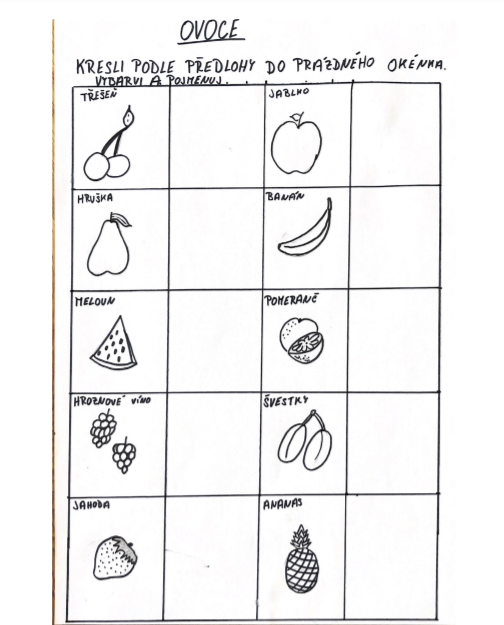 OVOCE
KRESLI PODLE PŘEDLOHY DO PRÁZDNÉHO OKÉNKA.
VYBARVI A POJMENUJ.
TŘEŠEŇ
JABLKO
HRUŠKA
BANÁN
MELOUN
POMERANČ
HROZNOVÉ VÍNO
ŠVESTKY
JAHODA
ANANAS